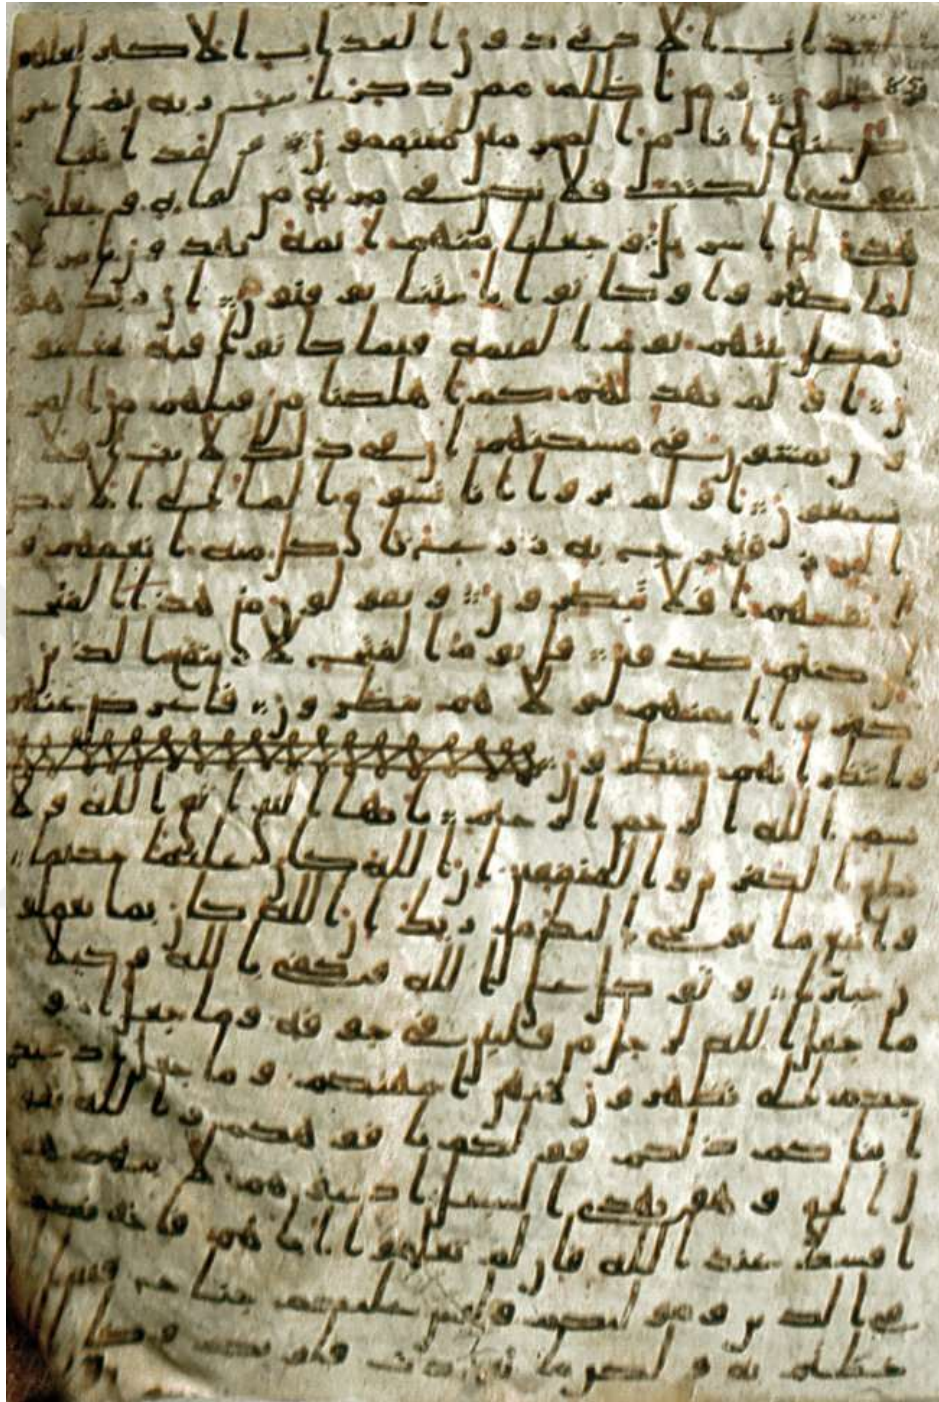 العذاب الادنى دون العذاب الاكبر لعلهم
85
يرجعون ومن اظلم ممن ذكر بايت ربه ثم اعر
ض عنها انا من المجرمين منتقمون ولقد اتينا
موسى الكتب فلا تكن في مرية من لقايه وجعلنه
هدى لبني اسريل وجعلنا منهم ايمة يهدون بامرنا
لما صبروا وكانوا بايتنا يوقنون ان ربك هو
يفصل بينهم يوم القيمة فيما كانوا فيه يختلفو
ن او لم يهد لهم كم اهلكنا من قبلهم من القر
ون يمشون في مسكنهم ان في ذلك لايت افلا
يسمعون او لم يروا انا نسوق الما الى الارض
الجرز فنخرج به زرعا تاكل منه انعمهم و
انفسهم افلا يبصرون ويقولون متى هذا الفتح
ان كنتم صدقين قل يوم الفتح لا ينفع الذين
كفروا ايمنهم ولا هم ينظرون فاعرض عنهم
وانتظر انهم منتظرون
بسم الله الرحمن الرحيم يايها النبي اتق الله ولا
تطع الكفرين والمنفقين ان الله كان عليما حكيما
واتبع ما يوحى اليك من ربك ان الله كان بما تعملو
ن خبيرا وتوكل على الله وكفى بالله وكيلا
ما جعل الله لرجل من قلبين في جوفه وما جعل ازو
جكم الي تظهرون منهن امهتكم وما جعل ادعيا
كم ابناكم ذلكم قولكم بافوهكم والله يقو
ل الحق وهو يهدي السبيل ادعوهم لابايهم هو
اقسط عند الله فان لم تعلموا اباهم فاخونكم
في الدين وموليكم وليس عليكم جناح فيما
اخطاتم به ولكن ما تعمدت قلوبكم وكان